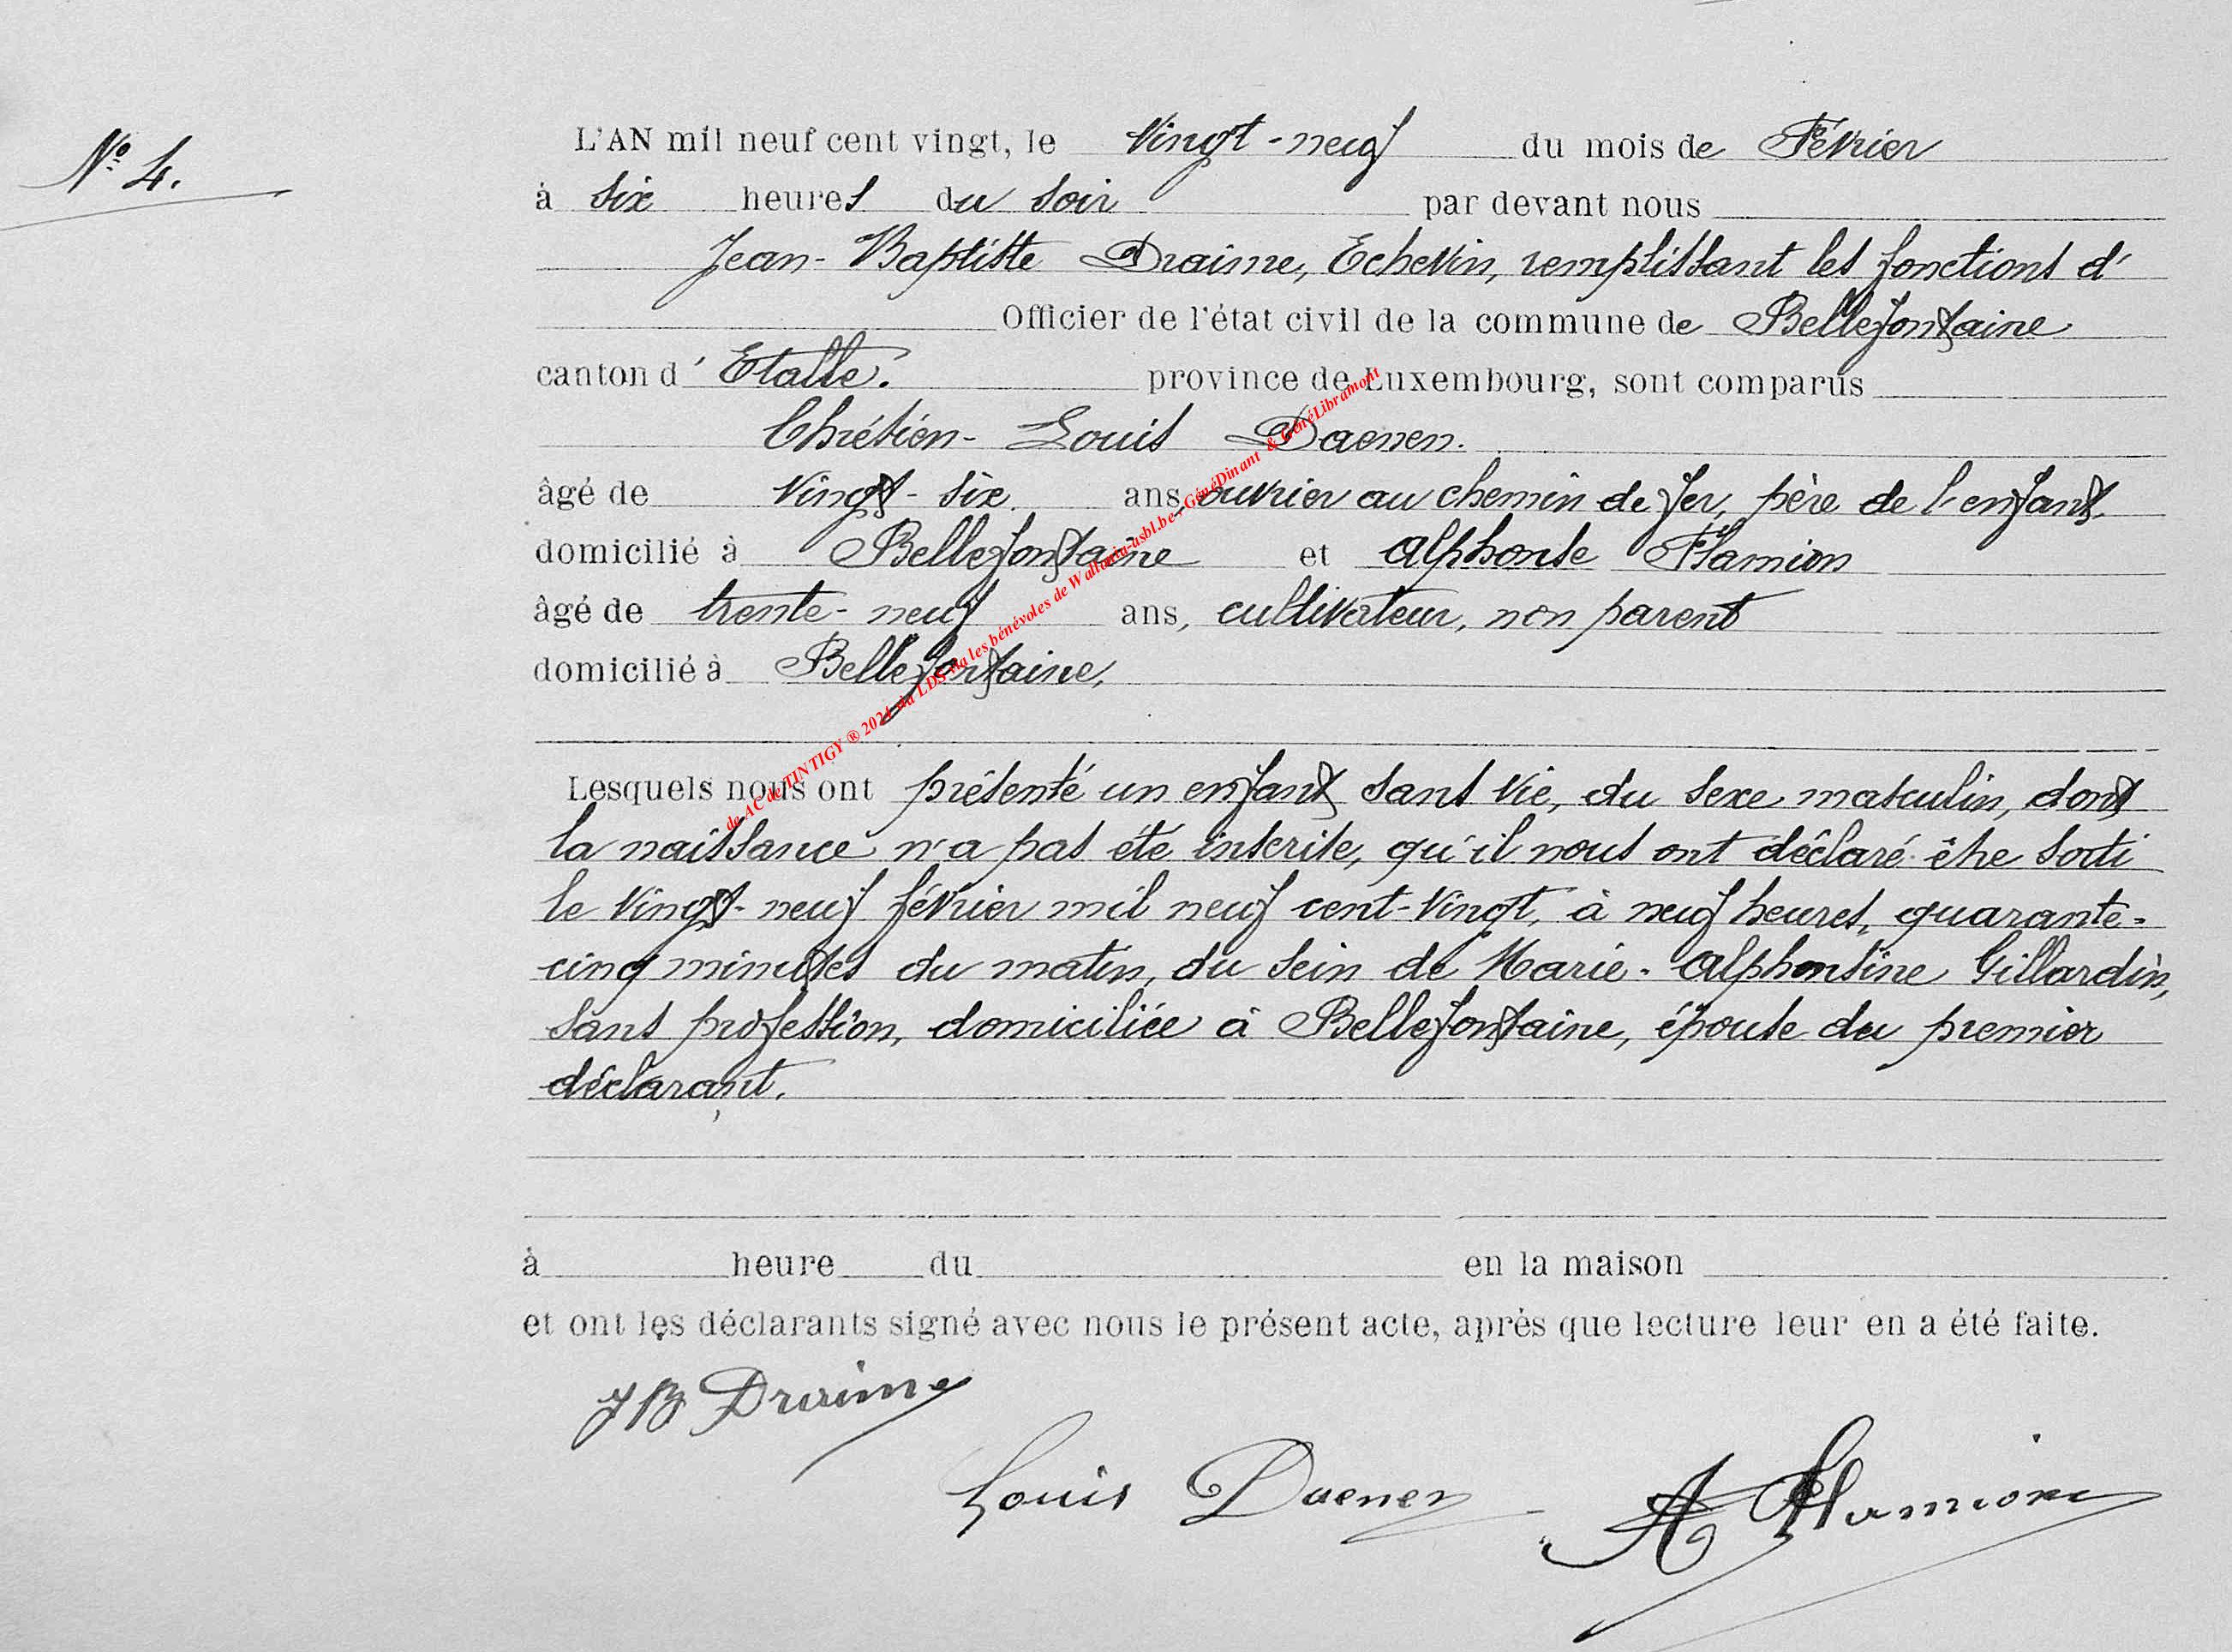 N° 4.
L'AN mil neuf cent vingt, le vingt-neuf du mois de Février
à six heures du soir par devant nous
Jean-Baptiste Draime, Echevin, remplissant les fonctions d'
Officier de l'état civil de la commune de Bellefontaine
canton d'Etalle. province de Luxembourg, sont comparus
Chrétien-Louis Daenen.
âgé de vingt-six ans, ouvrier au chemin de fer, père de l'enfant
domicilié à Bellefontaine et Alphonse Flamion
âgé de trente-neuf ans, cultivateur, non parent
domicilié à Bellefontaine,
Lesquels nous ont présenté un enfant sans vie, du sexe masculin, dont
la naissance n'a pas été inscrite, qu'il nous ont déclaré être sorti
le vingt-neuf février mil neuf cent-vingt, à neuf heures, quarante-
cinq minutes du matin, du sein de Marie-Alphonsine Gillardin,
sans profession, domiciliée à Bellefontaine, épouse du premier
déclarant.
à heure du en la maison
et ont les déclarants signé avec nous le présent acte, après que lecture leur en a été faite.
JB Draime
Louis Daenen
A Flamion
de AC de TINTIGY ® 2021 via LDS via les bénévoles de Wallonia-asbl.be - GénéDinant & GénéLibramont